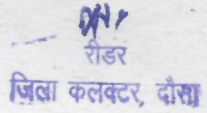 रीडर
जिला कलक्टर, दौसा